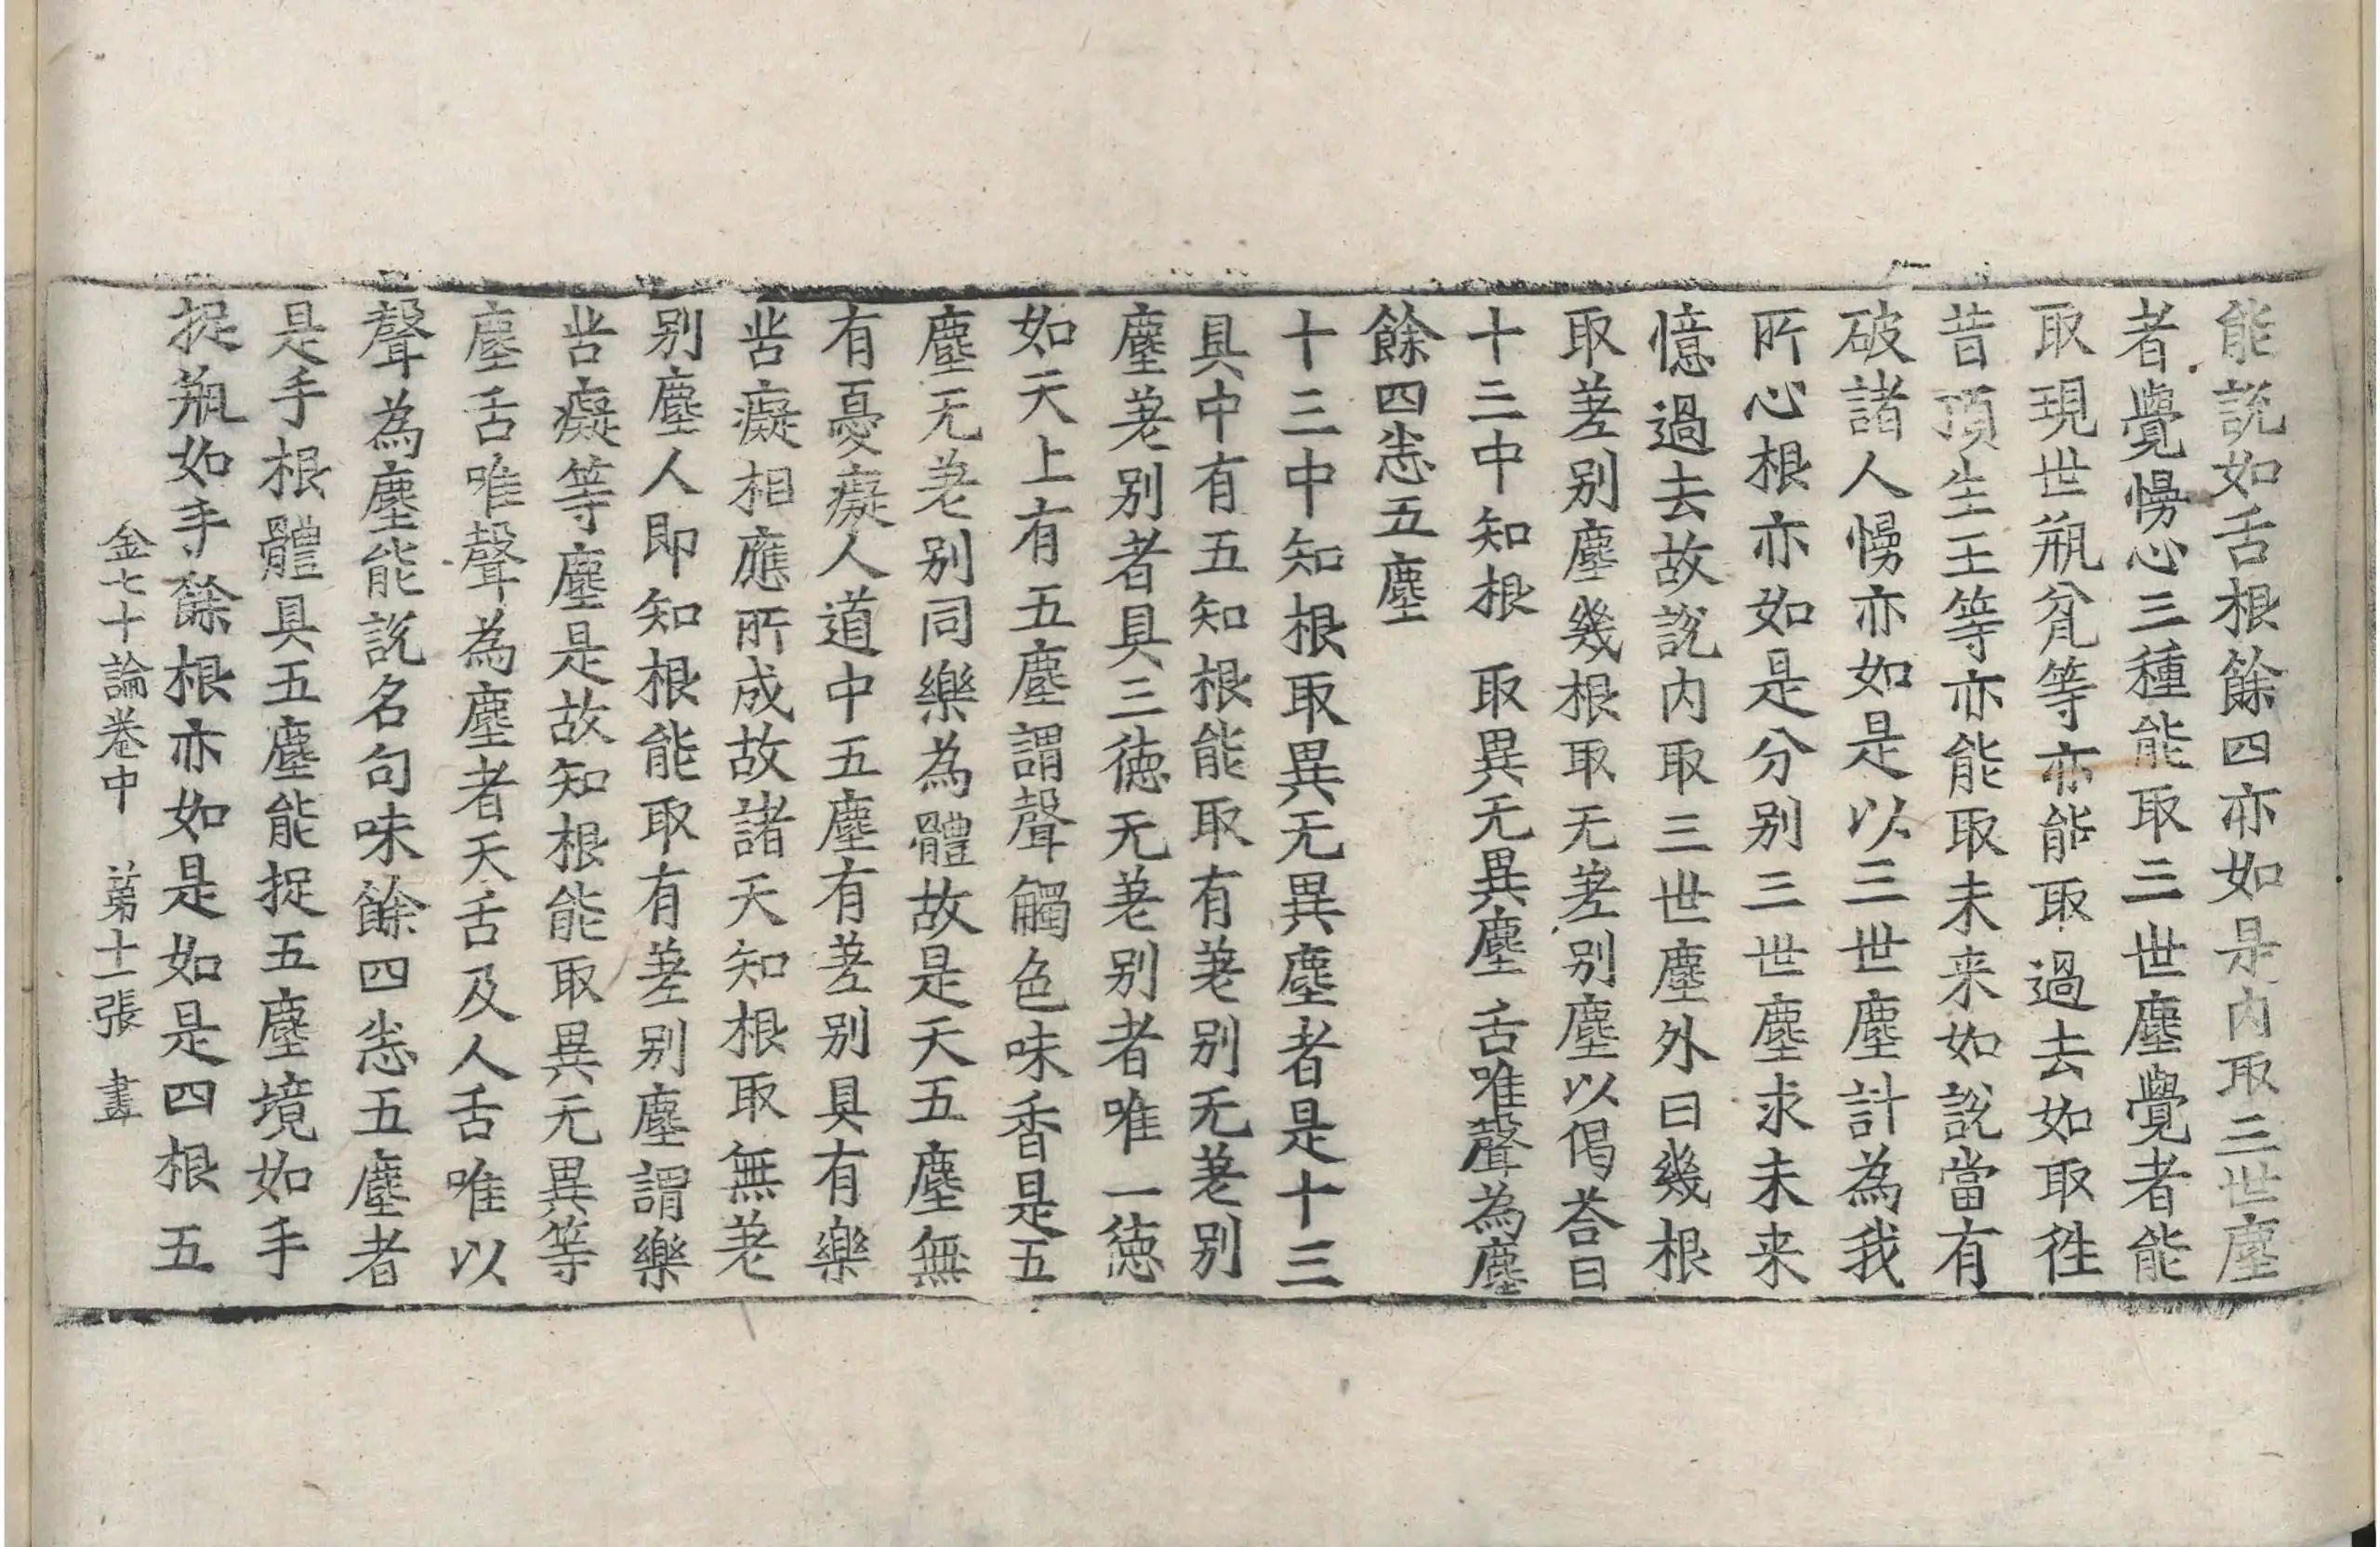 能說如舌根餘四亦如是內取三世塵
者覺慢心三種能取三世塵覺者能
取現世瓶瓮等亦能取過去如取徃
昔頂生王等亦能取未来如說當有
破諸人慢亦如是以三世塵計為我
所心根亦如是分别三世塵求未来
憶過去故說內取三世塵外曰幾根
取差别塵幾根取无差别塵以偈荅曰
十三中知根　取異无異塵　舌唯聲為塵
餘四恙五塵
十三中知根取異无異塵者是十三
具中有五知根能取有差别无差别
塵差别者具三徳无差别者唯一徳
如天上有五塵謂聲觸色味香是五
塵无差别同樂為體故是天五塵無
有憂癡人道中五塵有差别具有樂
苦癡相應所成故諸天知根取無差
别塵人即知根能取有差别塵謂樂
苦癡等塵是故知根能取異无異等
塵舌唯聲為塵者天舌及人舌唯以
聲為塵能說名句味餘四恙五塵者
是手根體具五塵能捉五塵境如手
捉瓶如手餘根亦如是如是四根五
金七十論卷中　第十一張　晝